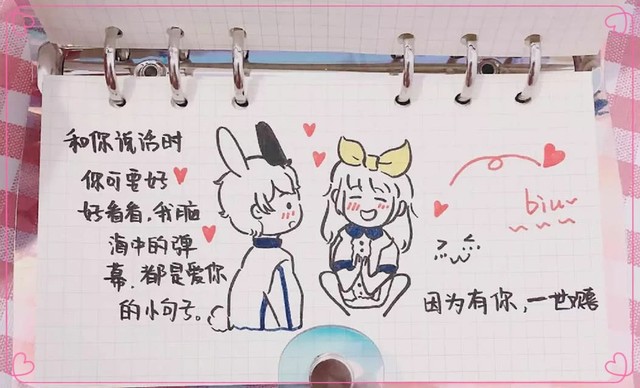 和你说话时
你可要好
好看看,我脑
海中的弹
幕,都是爱你
的小句子。
biu~
因为有你,一世欢喜